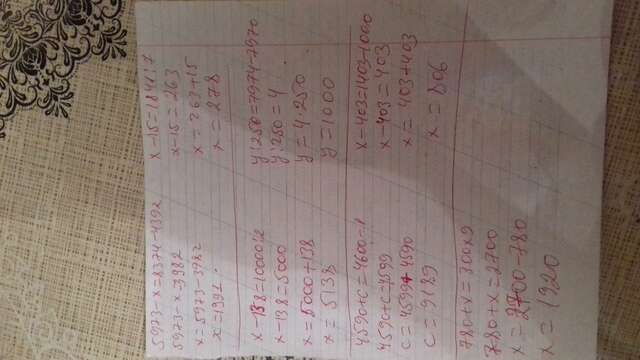 5973-x=8374-4392
5973-x=3982
x=5973-3982
x=1991.
x-15=1841:7
x-15=263
x=263+15
x=278
x-138=10000:2
x-138=5000
x=5000+138
x=5138
y:250=7974-7970
y:250=4
y=4·250
y=1000
4590+c=4600-1
4590+c=4599
c=4599+4590
c=9189
x-403=1403-1000
x-403=403
x=403+403
x=806
780+x=300x9
780+x=2700
x=2700-780
x=1920